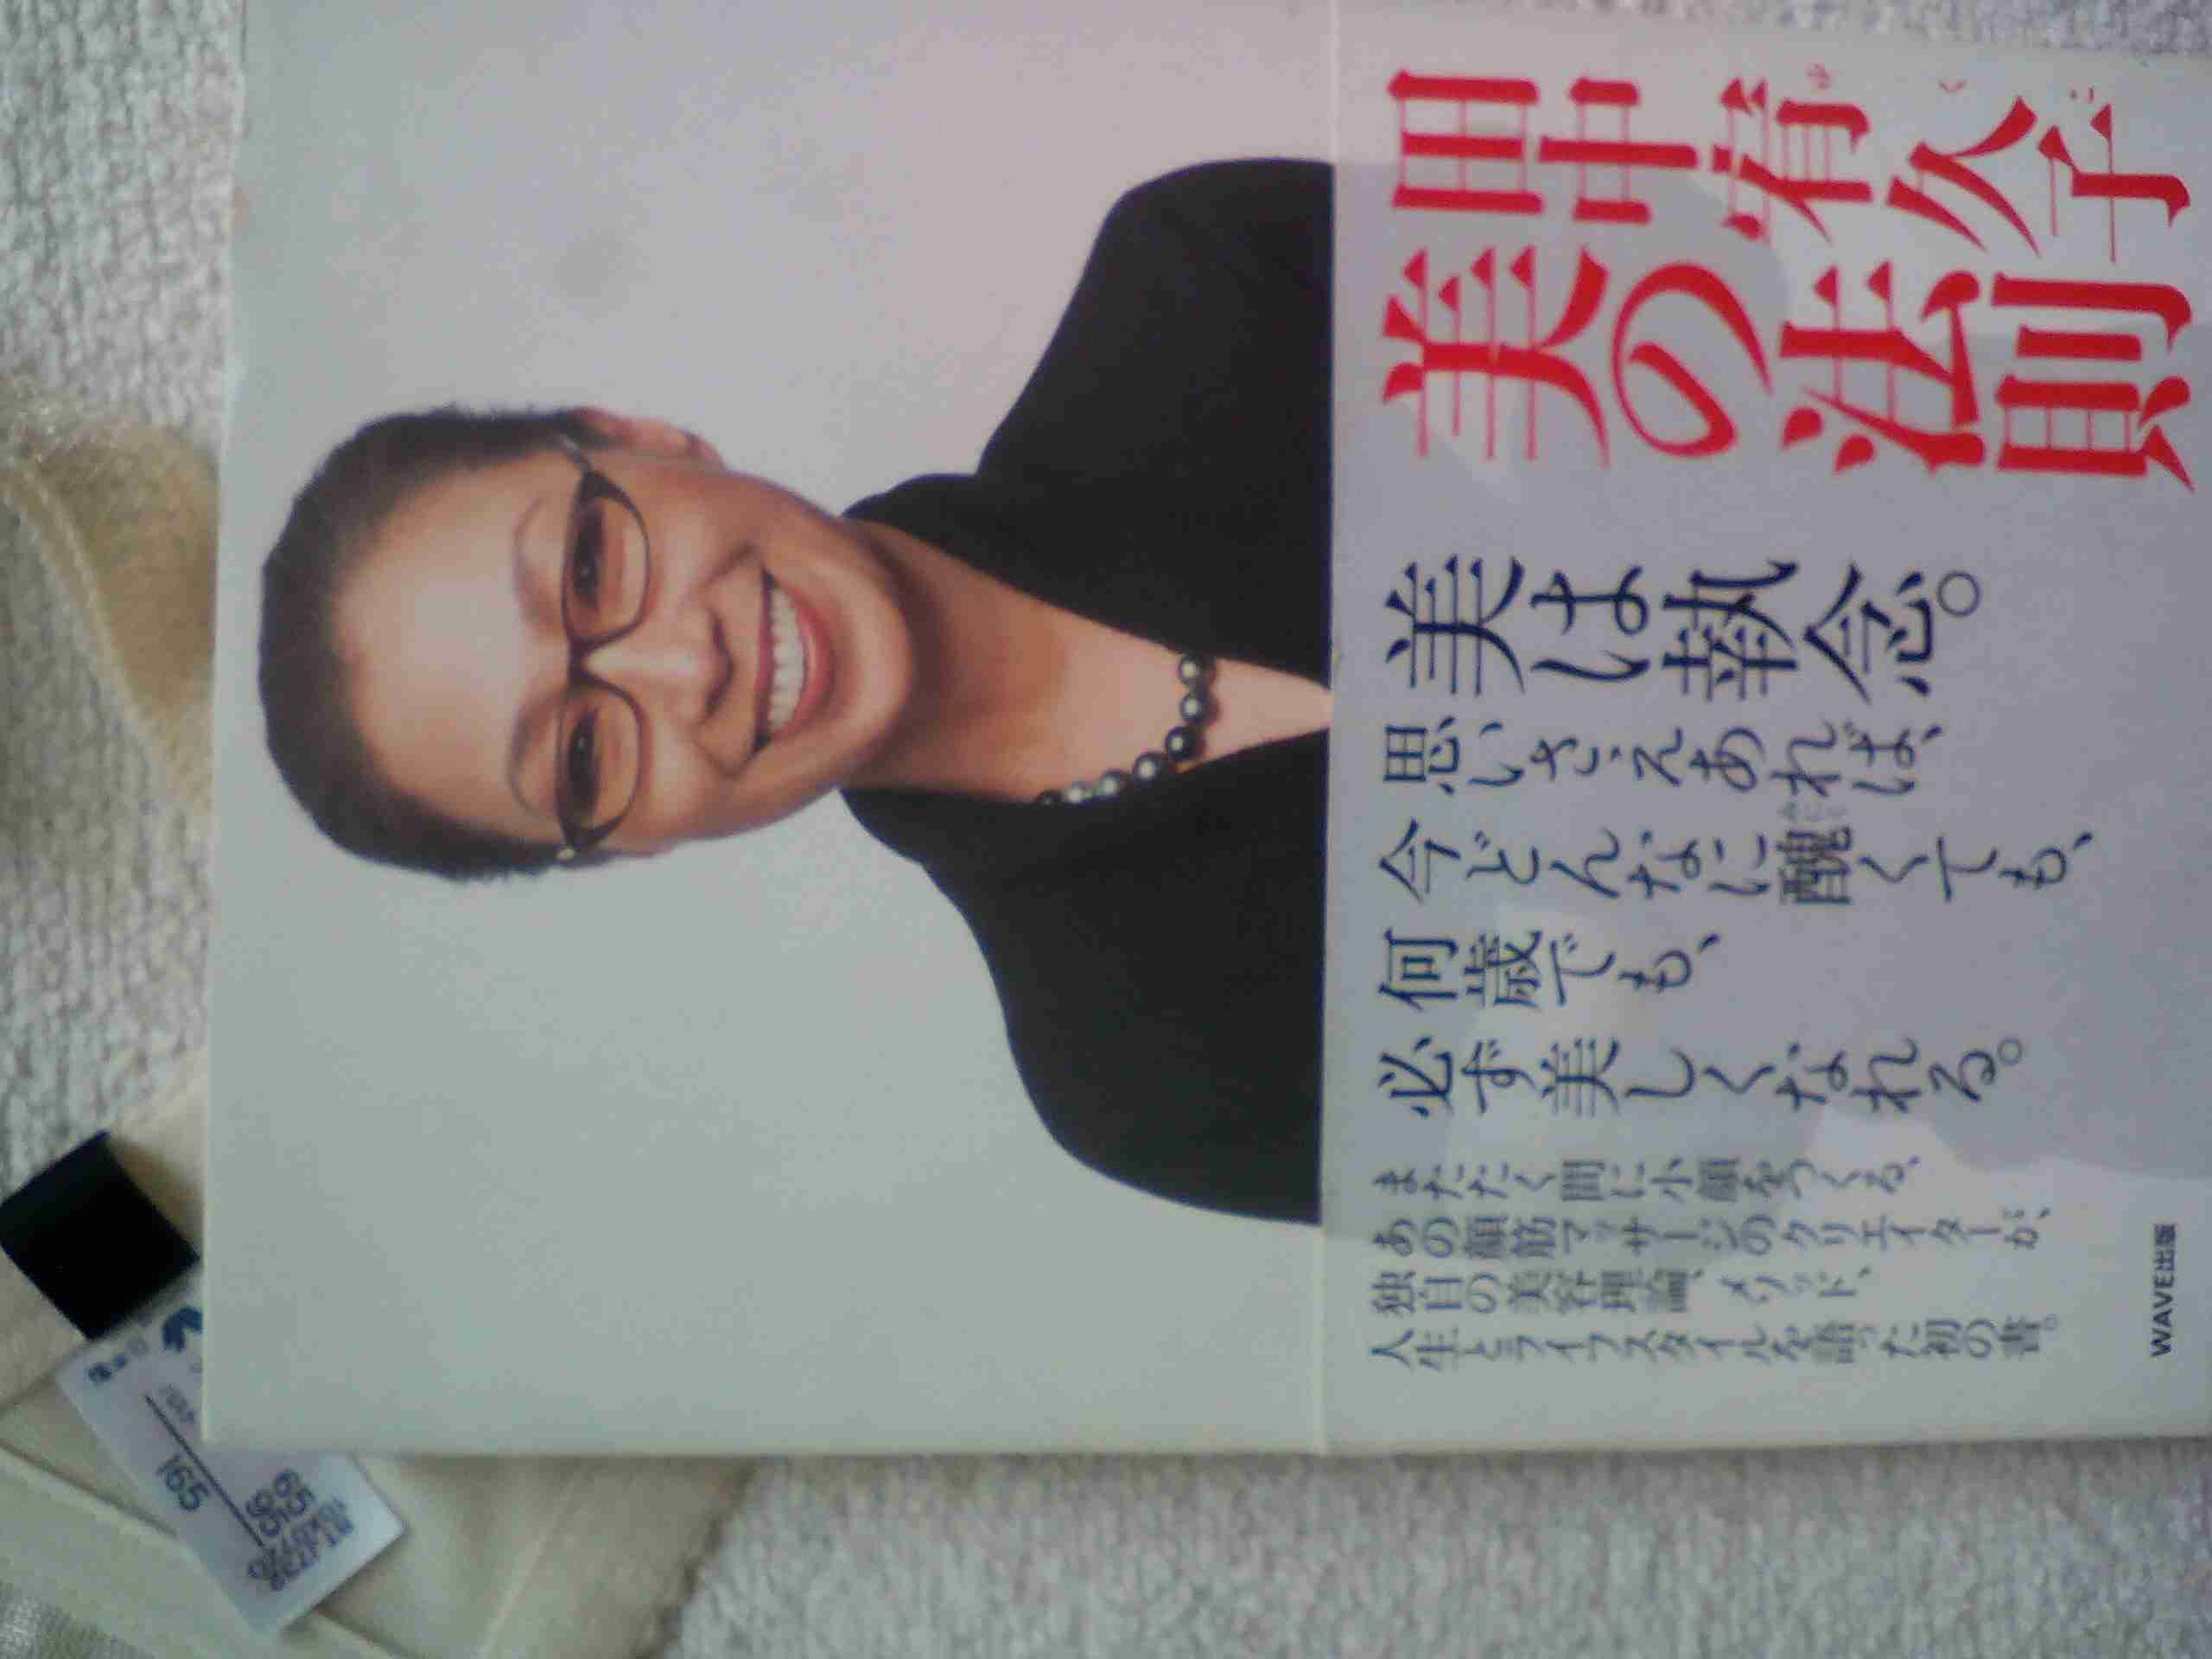 田中宥久子
ゆくこ
美の法則
美は執念。
思いさえあれば、
今どんなに醜くても、
何歳でも、
必ず美しくなれる。
またたく間に小顔をつくる、
あの顔筋マッサージのクリエイターが、
独自の美容理論、メソッド、
人生とライフスタイルを語った初の書。
WAVE出版
165